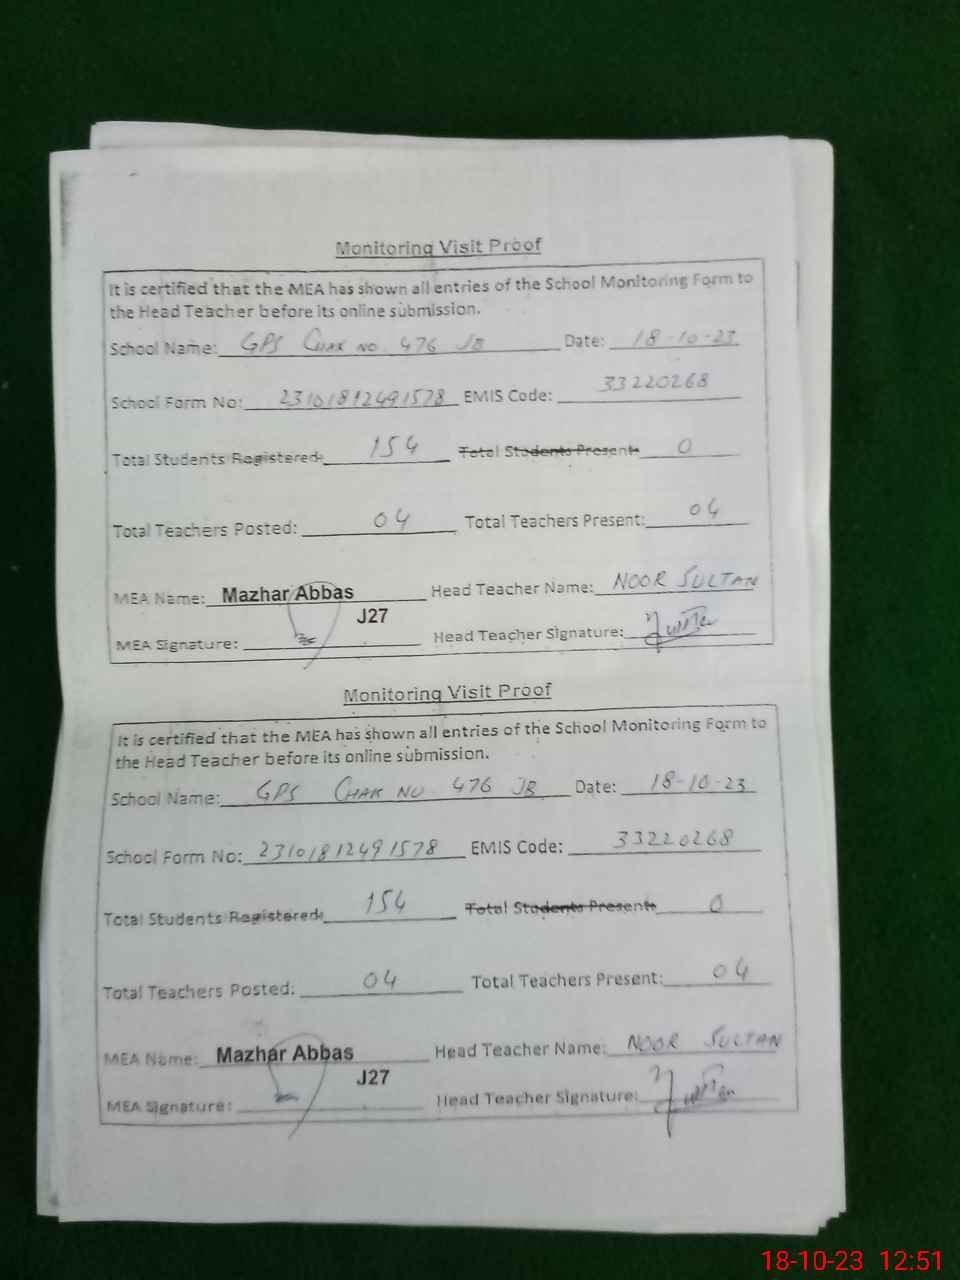 Monitoring Visit Proof
It is certified that the MEA has shown all entries of the School Monitoring Form to
the Head Teacher before its online submission.
School Name: GPS CHAK NO. 476 JB Date: 18-10-23
School Form No: 2310181249 1578 EMIS Code: 33220268
Total Students Registered: 154 Total Students Present: 0
Total Teachers Posted: 04 Total Teachers Present: 04
MEA Name: Mazhar Abbas Head Teacher Name: NOOR SULTAN
J27
MEA Signature: Head Teacher Signature:
Monitoring Visit Proof
It is certified that the MEA has shown all entries of the School Monitoring Form to
the Head Teacher before its online submission.
School Name: GPS CHAK NO. 476 JB Date: 18-10-23
School Form No: 2310181249 1578 EMIS Code: 33220268
Total Students Registered: 154 Total Students Present: 0
Total Teachers Posted: 04 Total Teachers Present: 04
MEA Name: Mazhar Abbas Head Teacher Name: NOOR SULTAN
J27
MEA Signature: Head Teacher Signature:
18-10-23 12:51